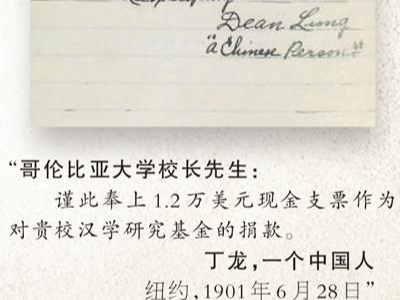 Dean Lung
"a Chinese Person"
“哥伦比亚大学校长先生：
谨此奉上1.2万美元现金支票作为
对贵校汉学研究基金的捐款。
丁龙，一个中国人
纽约，1901年6月28日”